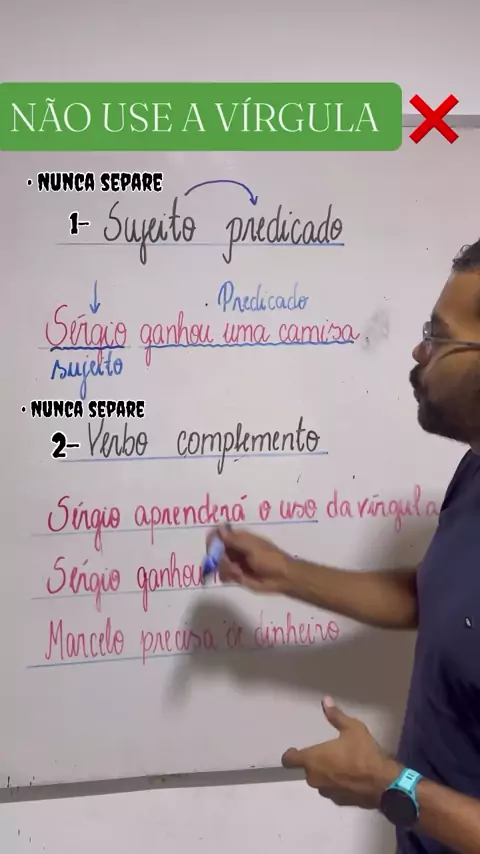 NÃO USE A VÍRGULA
• NUNCA SEPARE
1- Sujeito predicado
Predicado
Sérgio ganhou uma camisa.
sujeito
• NUNCA SEPARE
2- Verbo complemento
Sérgio aprenderá o uso da vírgula
Sérgio ganhou
Marcelo precisa de dinheiro